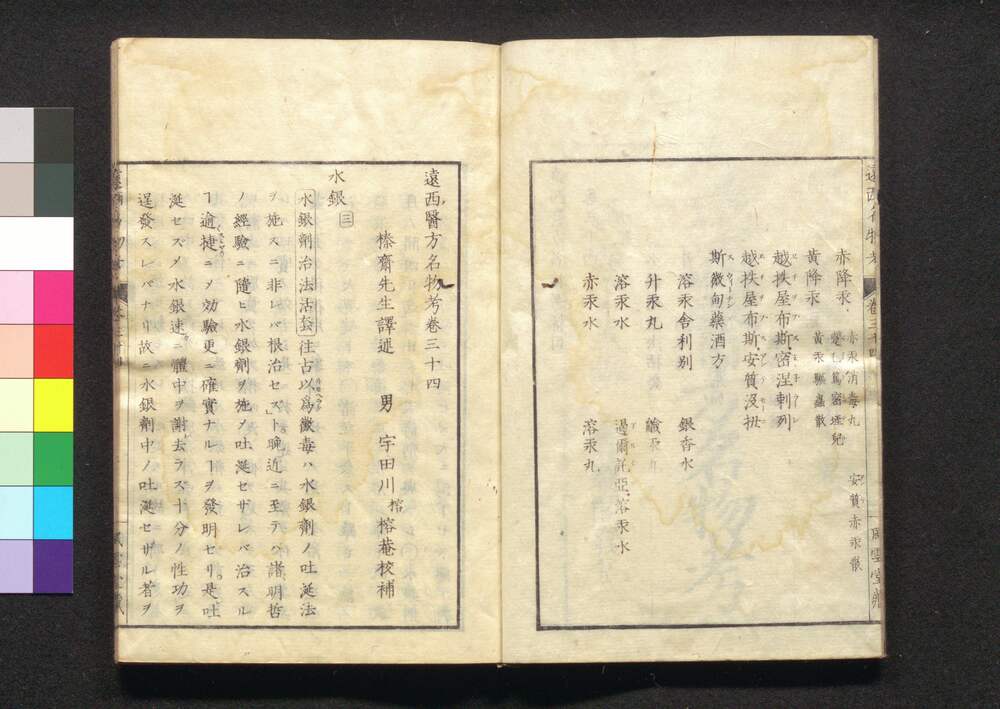 赤降汞
赤汞消毒丸
安質赤汞散
黄降汞
黄汞驅蟲散
越抶屋布斯、密涅刺列
越抶屋布斯、安質没扯
斯微甸藥酒方
溶汞舎利别
銀香水
升汞丸
溶汞水
溶汞水
赤汞水
溶汞丸
遠西醫方名物考卷三十四
榛齋先生譯述 男 宇田川 榕 榕菴校補
水銀 三
水銀劑治法活套 往古以爲黴毒ハ水銀劑ノ吐涎法
ヲ施スニ非レバ根治セズト晩近ニ至テハ諸明哲
ノ經驗ニ隨ヒ水銀劑ヲ施ノ吐涎セザレバ治スル
ヿ逾捷ニノ効驗更ニ確實ナルヿヲ發明セリ是吐
涎セズノ水銀速ニ體中ヲ謝去ラズ十分ノ性功ヲ
逞發スレバナリ故ニ水銀劑中ノ吐涎セザル者ヲ